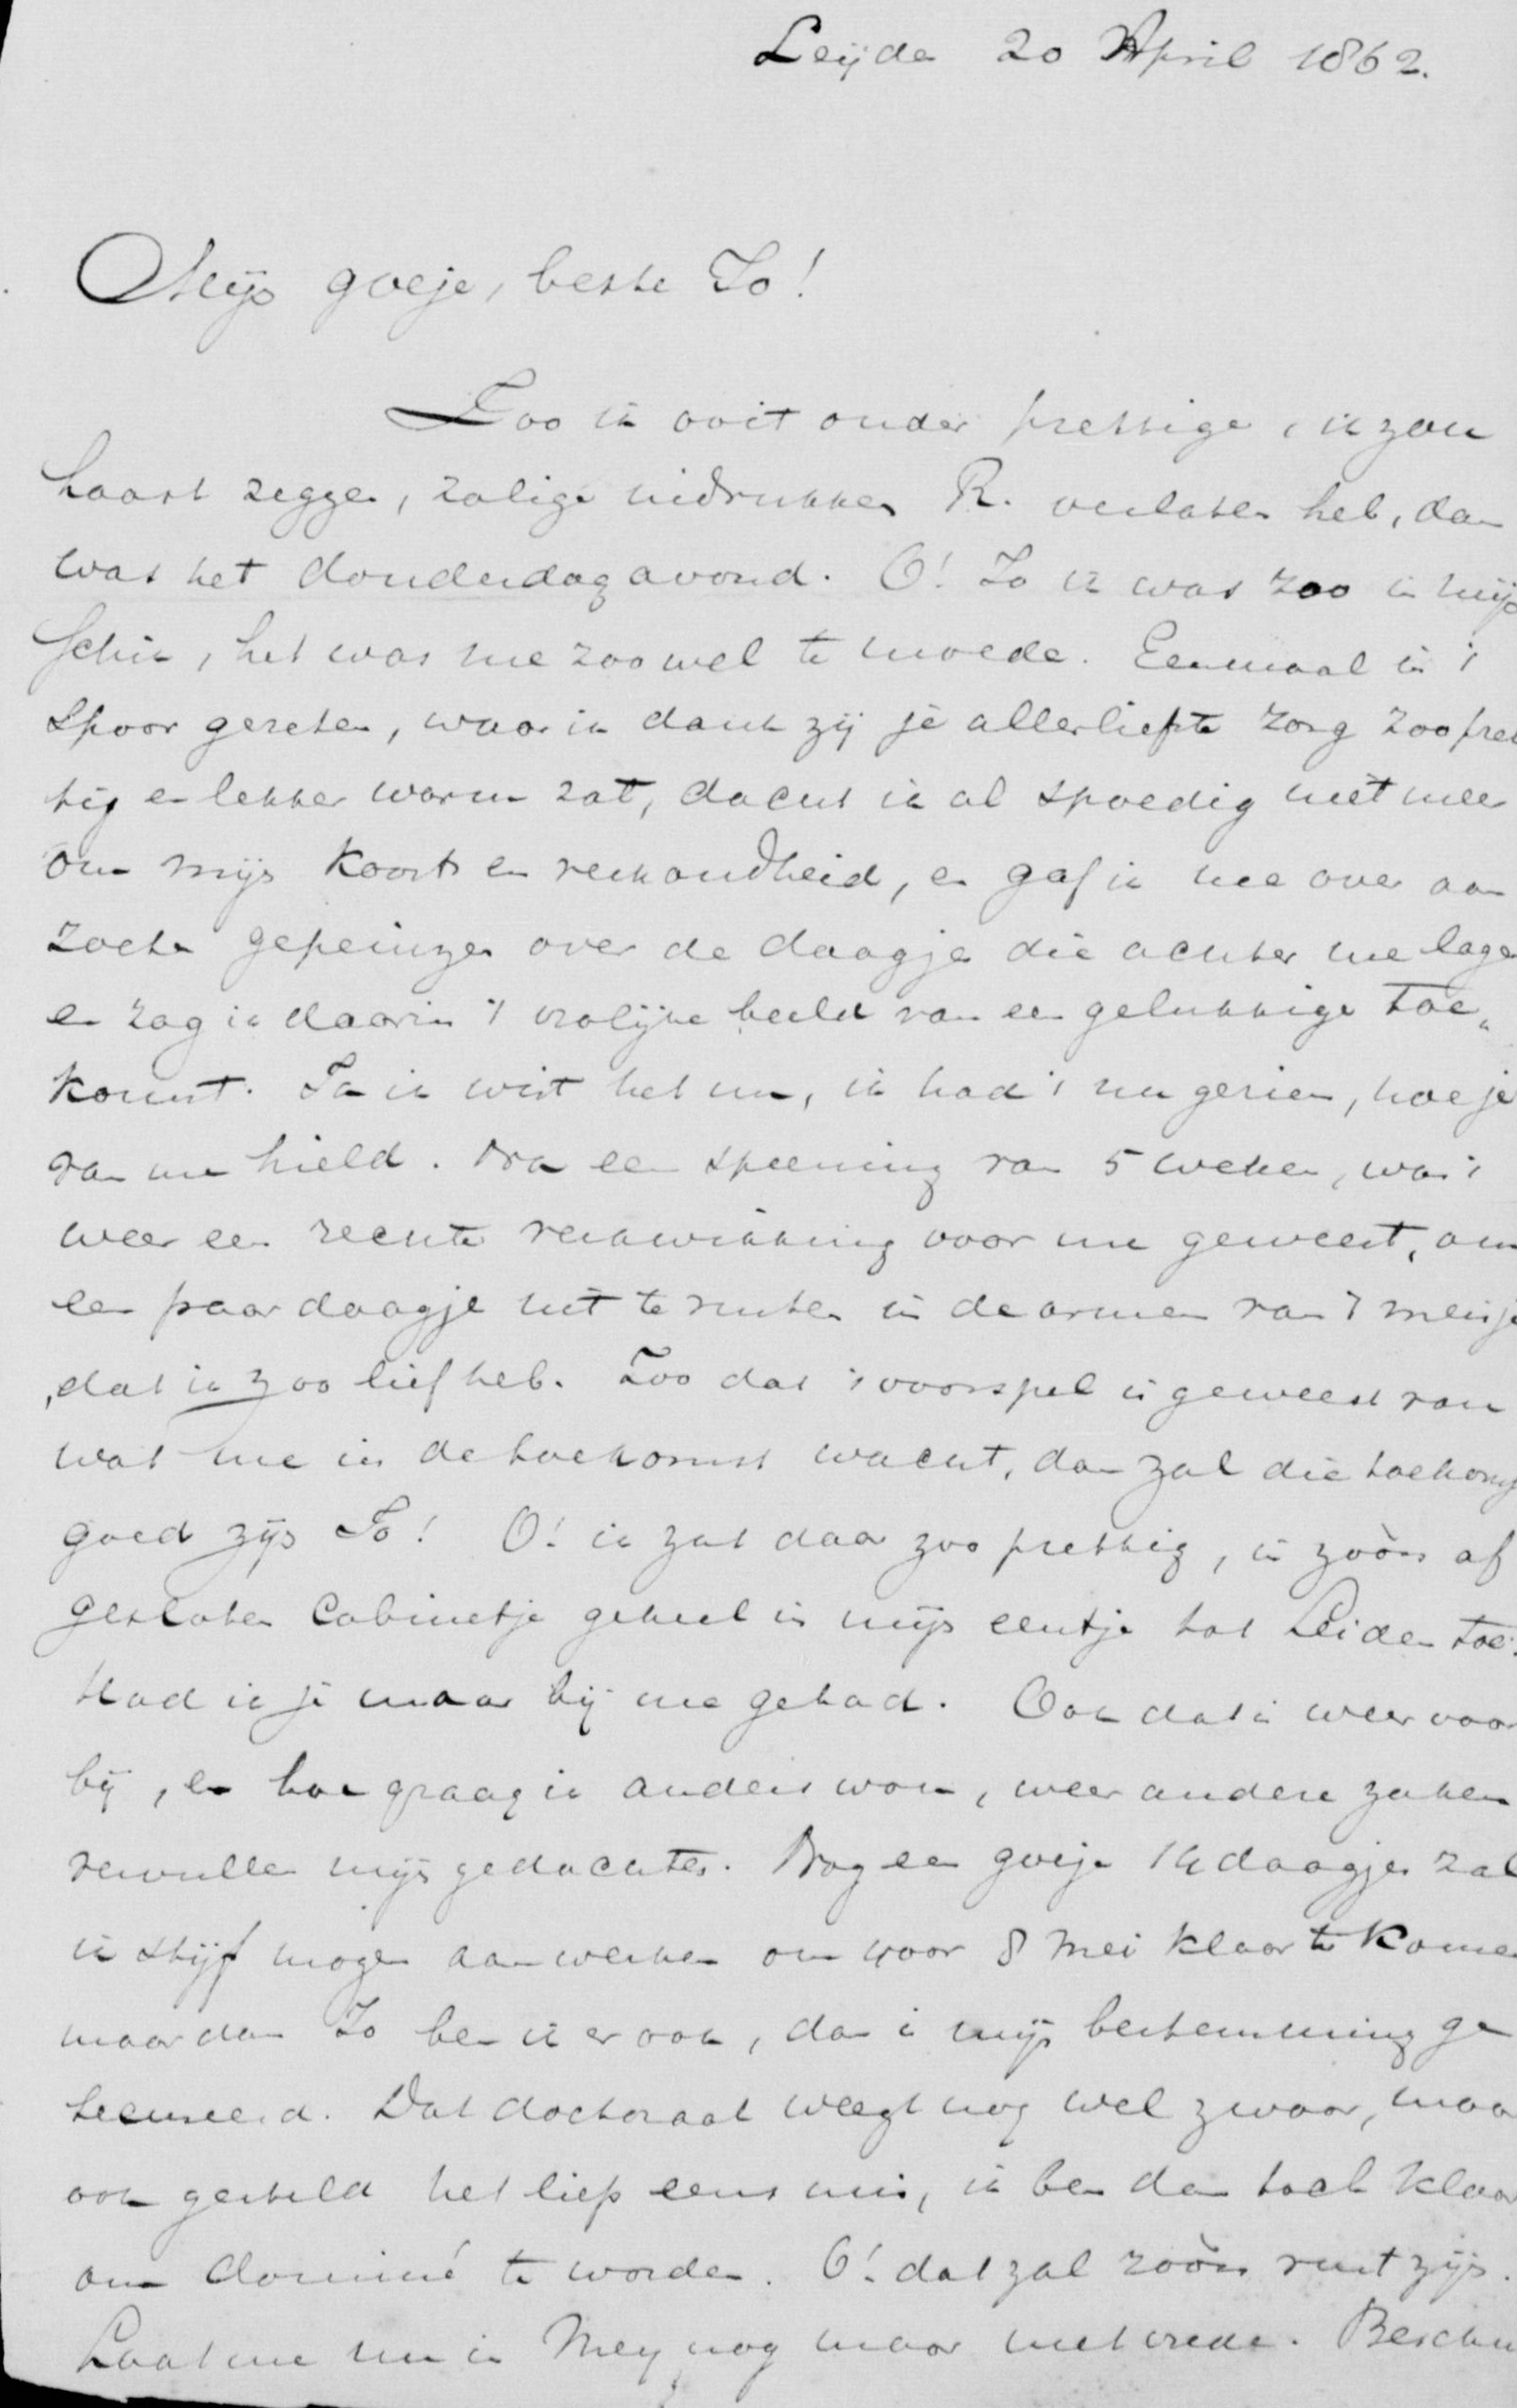 Leijde 20 April 1862.
Mijn goeje, beste Jo!
Zoo ik ooit onder prettige, ik zou
haast zeggen, zalige indrukken R. verlaten heb, dan
was het donderdagavond. O! Jo ik was zoo in mijn
schik, het was me zoo wel te moede. Eenmaal in 't
spoor gezeten, waar ik dank zij je allerliefste zorg zoo pret
tig en lekker warm zat, dacht ik al spoedig niet meer
om mijn koorts en verkoudheid, en gaf ik me over aan
zoete gepeinzen over de daagjes die achter me lagen
en zag ik daarin 't vrolijke beeld van een gelukkige toe„
komst. Ja ik wist het nu, ik had 't nu gezien, hoe je
van me hield. Na een speening van 5 weken, was 't
weer een rechte verkwikking voor me geweest, om
een paar daagjes uit te rusten in de armen van 't meisje
dat ik zoo lief heb. Zoo dat 't voorspel is geweest van
wat me in de toekomst wacht, dan zal die toekomst
goed zijn Jo! O! ik zat daar zoo prettig, in zòòn af
gesloten cabinetje geheel in mijn eentje tot Leiden toe.
Had ik je maar bij me gehad. Ook dat is weer voor
bij, en hoe graag ik anders wou, weer andere zaken
vervullen mijn gedachten. Nog een goeje 14 daagjes zal
ik stijf mogen aanwerken om voor 8 Mei klaar te komen
maar dan Jo ben ik er ook, dan is mijn bestemming ge
Dat doctoraat weegt nog wel zwaar, maar
ook gesteld het liep eens mis, ik ben dan toch klaar
om dominé te worden. O! dat zal zòòn rust zijn.
Laat me nu in Mey nog maar met vrede. Beschu